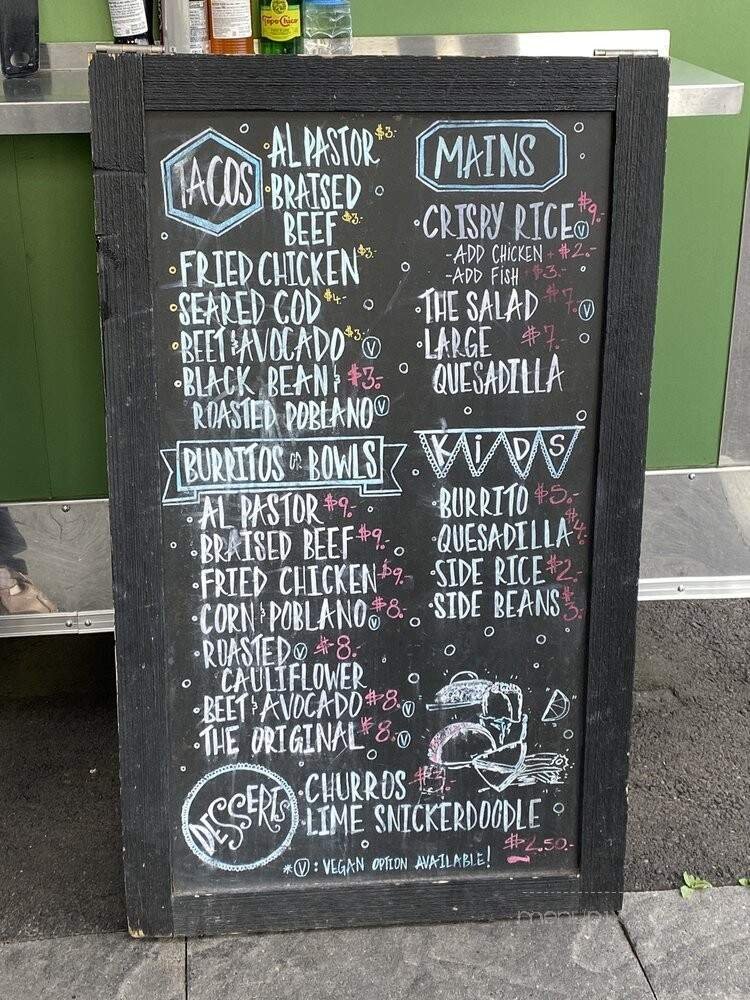 Topo Chico
TACOS
AL PASTOR $3.-
BRAISED
BEEF $3.-
FRIED CHICKEN $3.-
SEARED COD $4.-
BEET & AVOCADO $3.- Ⓥ
BLACK BEAN & $3.-
ROASTED POBLANO Ⓥ
BURRITOS OR BOWLS
AL PASTOR $9.-
BRAISED BEEF $9.-
FRIED CHICKEN $9.-
CORN & POBLANO $8.- Ⓥ
ROASTED Ⓥ $8.-
CAULIFLOWER
BEET & AVOCADO $8.- Ⓥ
THE ORIGINAL $8.- Ⓥ
MAINS
CRISPY RICE $9.- Ⓥ
-ADD CHICKEN +$2.-
-ADD FISH +$3.-
THE SALAD $7.- Ⓥ
LARGE $7.-
QUESADILLA
KiDS
BURRITO $5.-
QUESADILLA $4.-
SIDE RICE $2.-
SIDE BEANS $3.-
DESSERTS
CHURROS $3.-
LIME SNICKERDOODLE
$2.50-
*Ⓥ: VEGAN OPTION AVAILABLE!